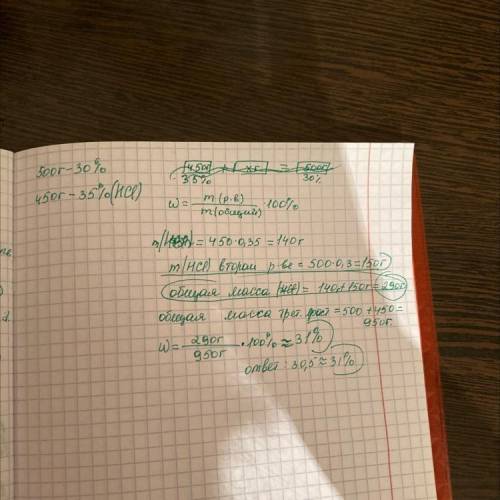 500г-30%
450г-35%(HCl)
450г + xг = 500г
35% 30%
ω= m(р.в) / m(общий) ·100%
= 450·0,35 = 140г
m(HCl) втором р-ве = 500·0,3=150г
общая масса = 140+150г=290г
общая масса трет. =500+450=
950г.
ω= 290г / 950г ·100% ≈ 31%
ответ: 30,5 ≈ 31%